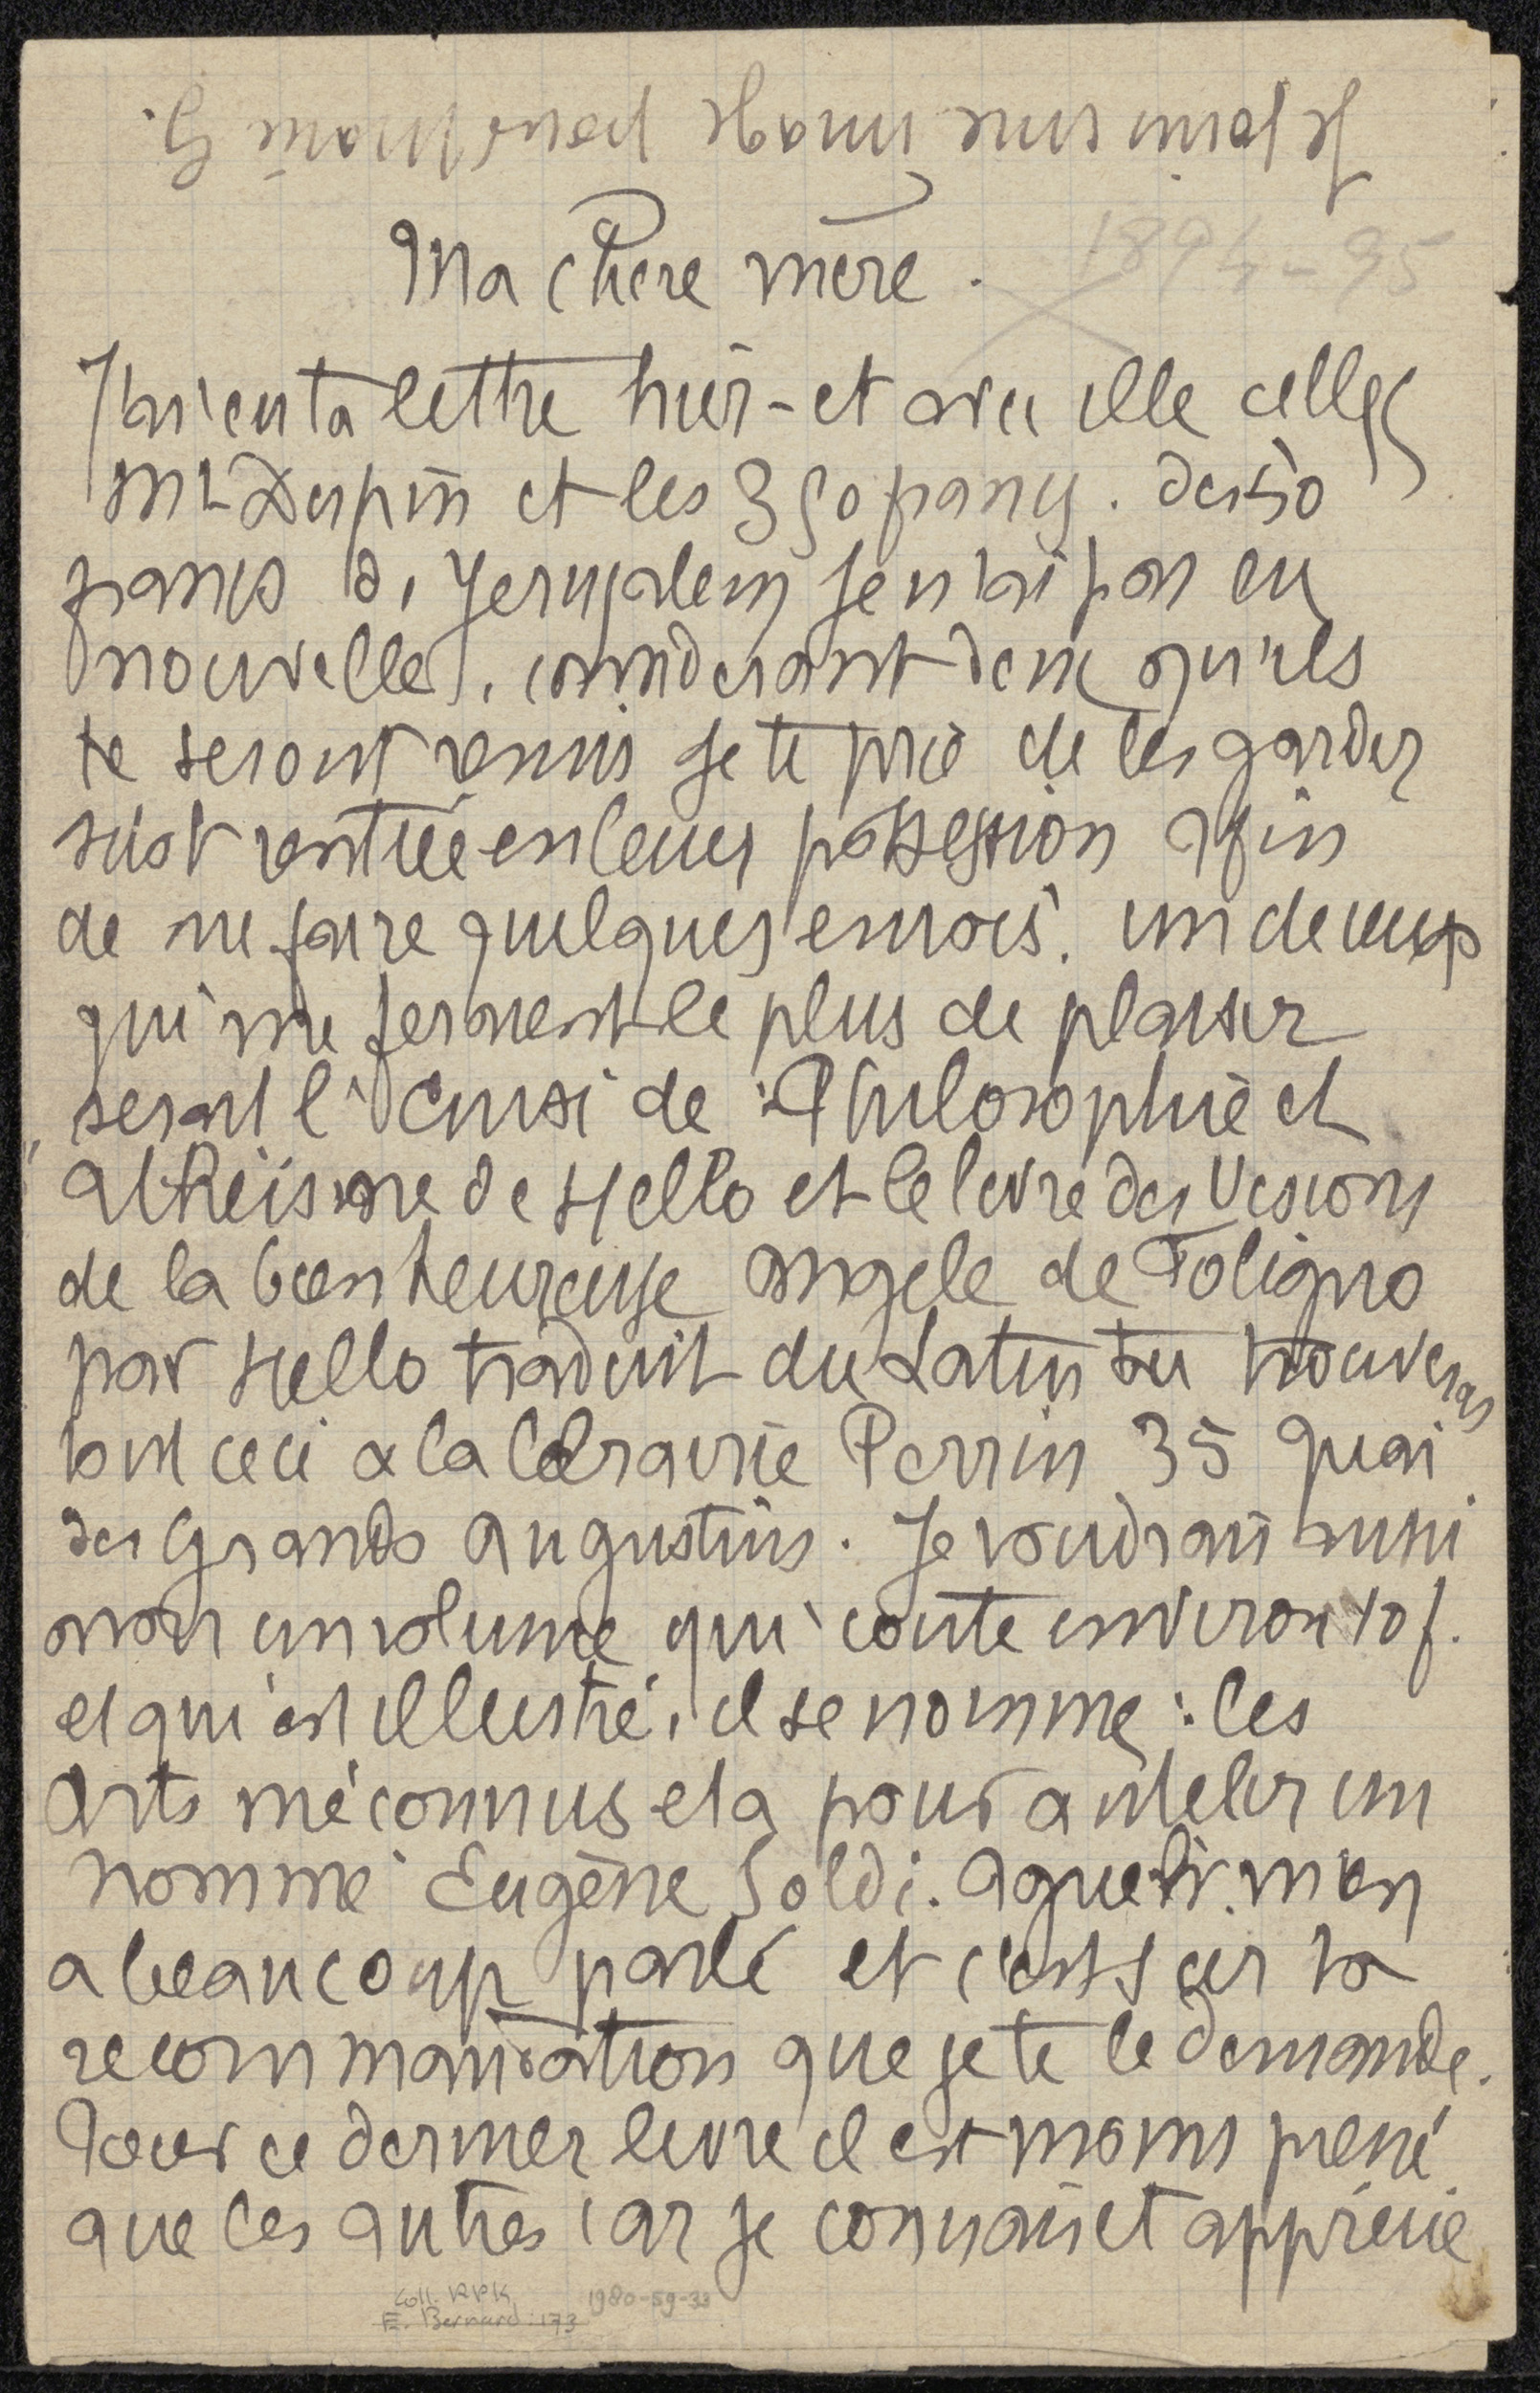 Je joins une image pour Maria G.
1894-95
Ma chere mère.
J'ai eu ta lettre hier - et avec elle celle
Mr Dupin et les 350 francs. des 50
francs de Jerusalem je n'ai pas eu
nouvelles, considerant donc qu'ils
te seront remis je te prie de les garder
sitôt rentrée en leur possession afin
de me faire quelques envois. un de ceux
qui me feraient le plus de plaisir
serait l'envoi de : Philosophie et
athéisme de Hello et le livre des Visions
de la bienheureuse Angele de Foligno
par Hello traduit du Latin tu trouveras
tout ceci a la librairie Perrin 35 quai
des Grands Augustins. Je voudrais aussi
avoir un volume qui coute environ 10 f.
et qui est illustré, il se nomme : les
Arts méconnus et a pour auteur un
nommé Eugène Soldi. Agueli m'en
a beaucoup parlé et c'est sur sa
recommandation que je te le demande.
Pour ce dernier livre il est moins pressé
que les autres car je connais et apprécie
Coll. RPK 1980-59-33
E. Bernard: 173